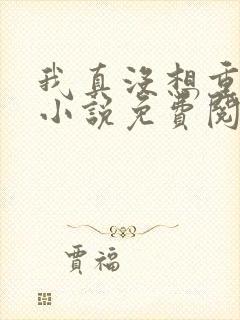 我真没想重
小说免费阅
贾福